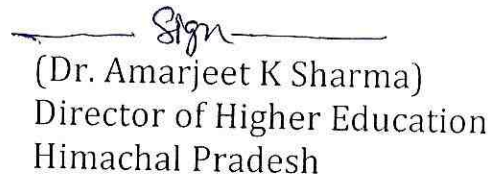 Sign
(Dr. Amarjeet K Sharma)
Director of Higher Education
Himachal Pradesh